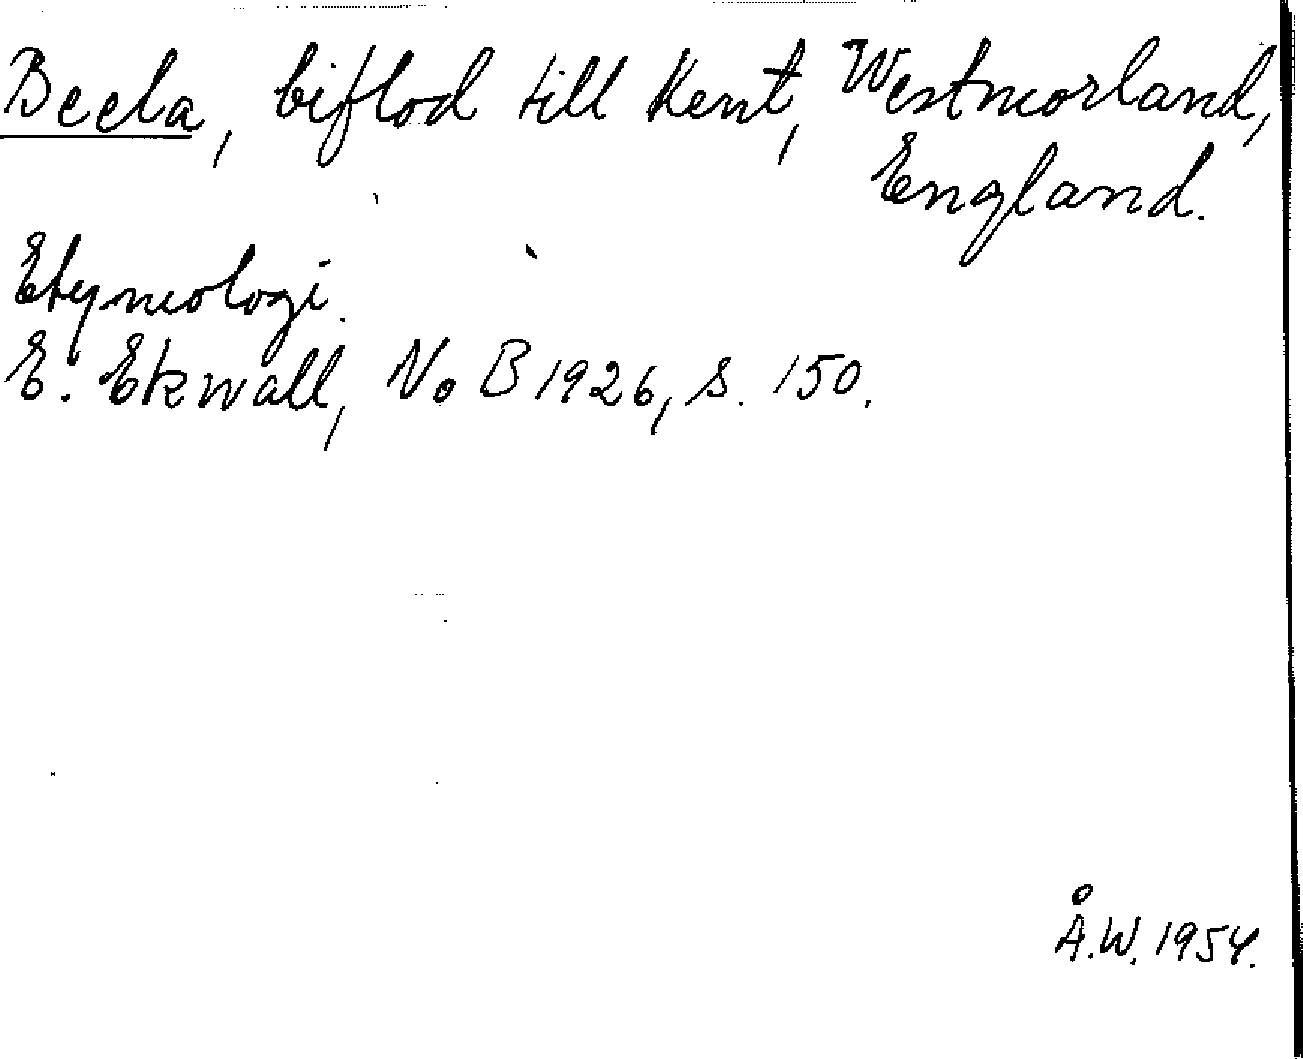 Beela, biflod till Kent, Westmorland,
England.
Etymologi.
E. Ekwall, NoB 1926, s. 150.
Å.W. 1954.